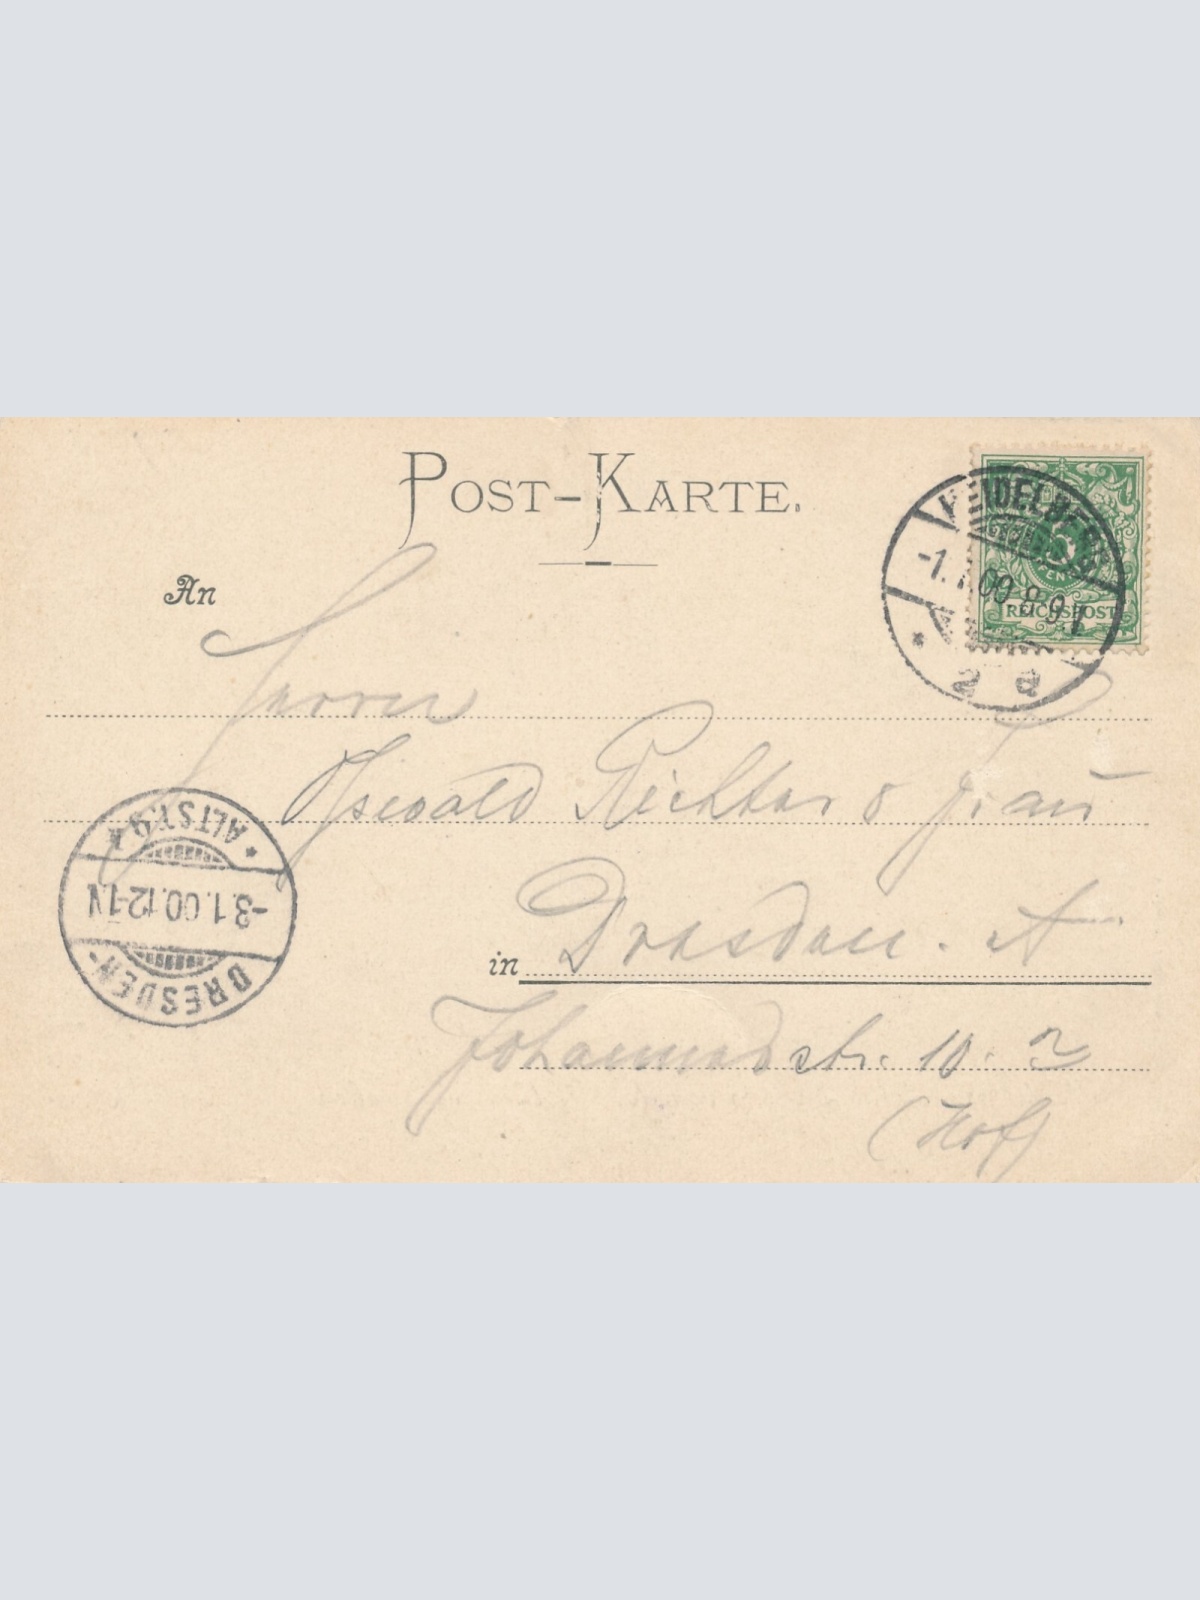 POST-KARTE.
HEIDELBERG
-1.1.00 8-9 V
* 2 a
REICHSPOST
An
Herrn
Oswald Richter & Frau
in Dresden. A
Johannesstr. 10.
(Hof)
* ALTST. 9 *
-3.1.00.12-1.N
DRESDEN-